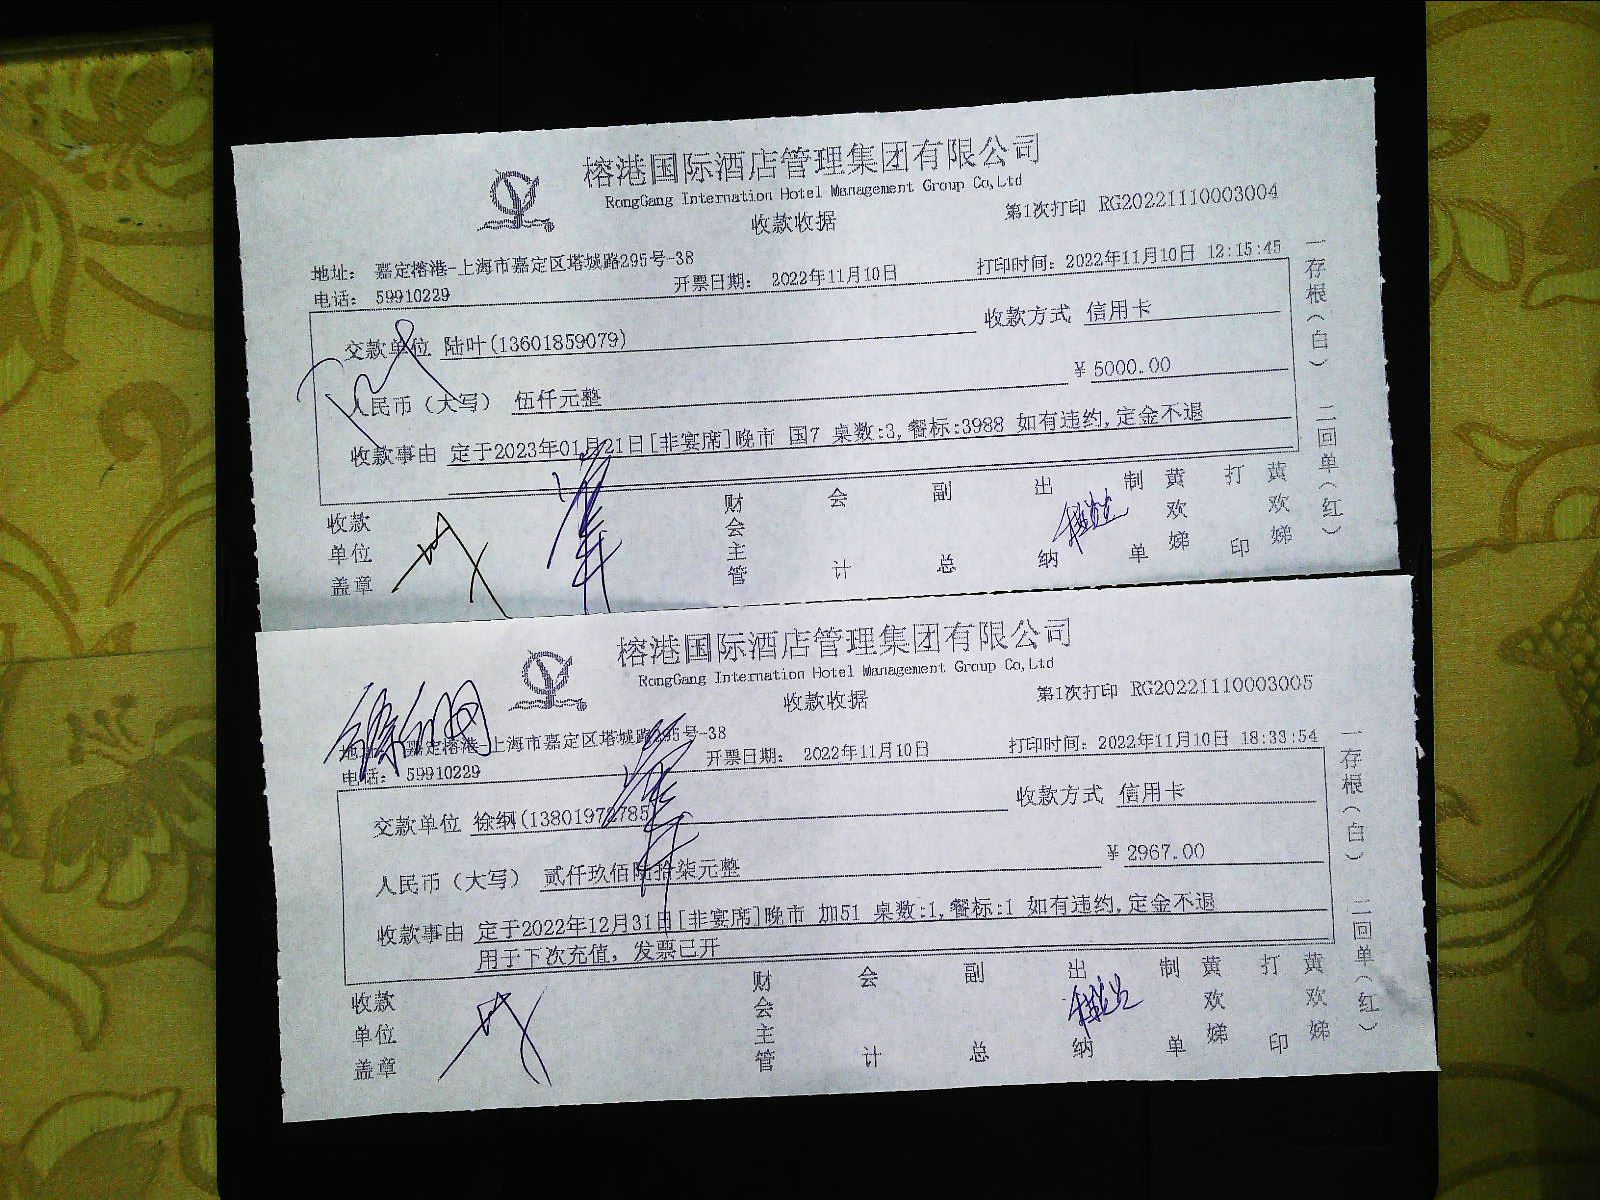 榕港国际酒店管理集团有限公司
RongGang Internation Hotel Management Group Co,Ltd
收款收据
第1次打印 RG20221110003004
地址： 嘉定榕港-上海市嘉定区塔城路295号-38
电话： 59910229
开票日期： 2022年11月10日
打印时间：2022年11月10日 12:15:45
交款单位 陆叶(13601859079)
收款方式 信用卡
人民币（大写） 伍仟元整
¥ 5000.00
收款事由 定于2023年01月21日[非宴席]晚市 国7 桌数:3,餐标:3988 如有违约,定金不退
收款单位盖章
财会主管
会计
副总
出纳
制单 黄欢娣
打印 黄欢娣
一存根（白） 二回单（红）
榕港国际酒店管理集团有限公司
RongGang Internation Hotel Management Group Co,Ltd
收款收据
第1次打印 RG20221110003005
地址： 嘉定榕港-上海市嘉定区塔城路295号-38
电话： 59910229
开票日期： 2022年11月10日
打印时间：2022年11月10日 18:33:54
交款单位 徐纲
收款方式 信用卡
人民币（大写） 贰仟玖佰陆拾柒元整
¥ 2967.00
收款事由 定于2022年12月31日[非宴席]晚市 加51 桌数:1,餐标:1 如有违约,定金不退
用于下次充值，发票已开
收款单位盖章
财会主管
会计
副总
出纳
制单 黄欢娣
打印 黄欢娣
一存根（白） 二回单（红）